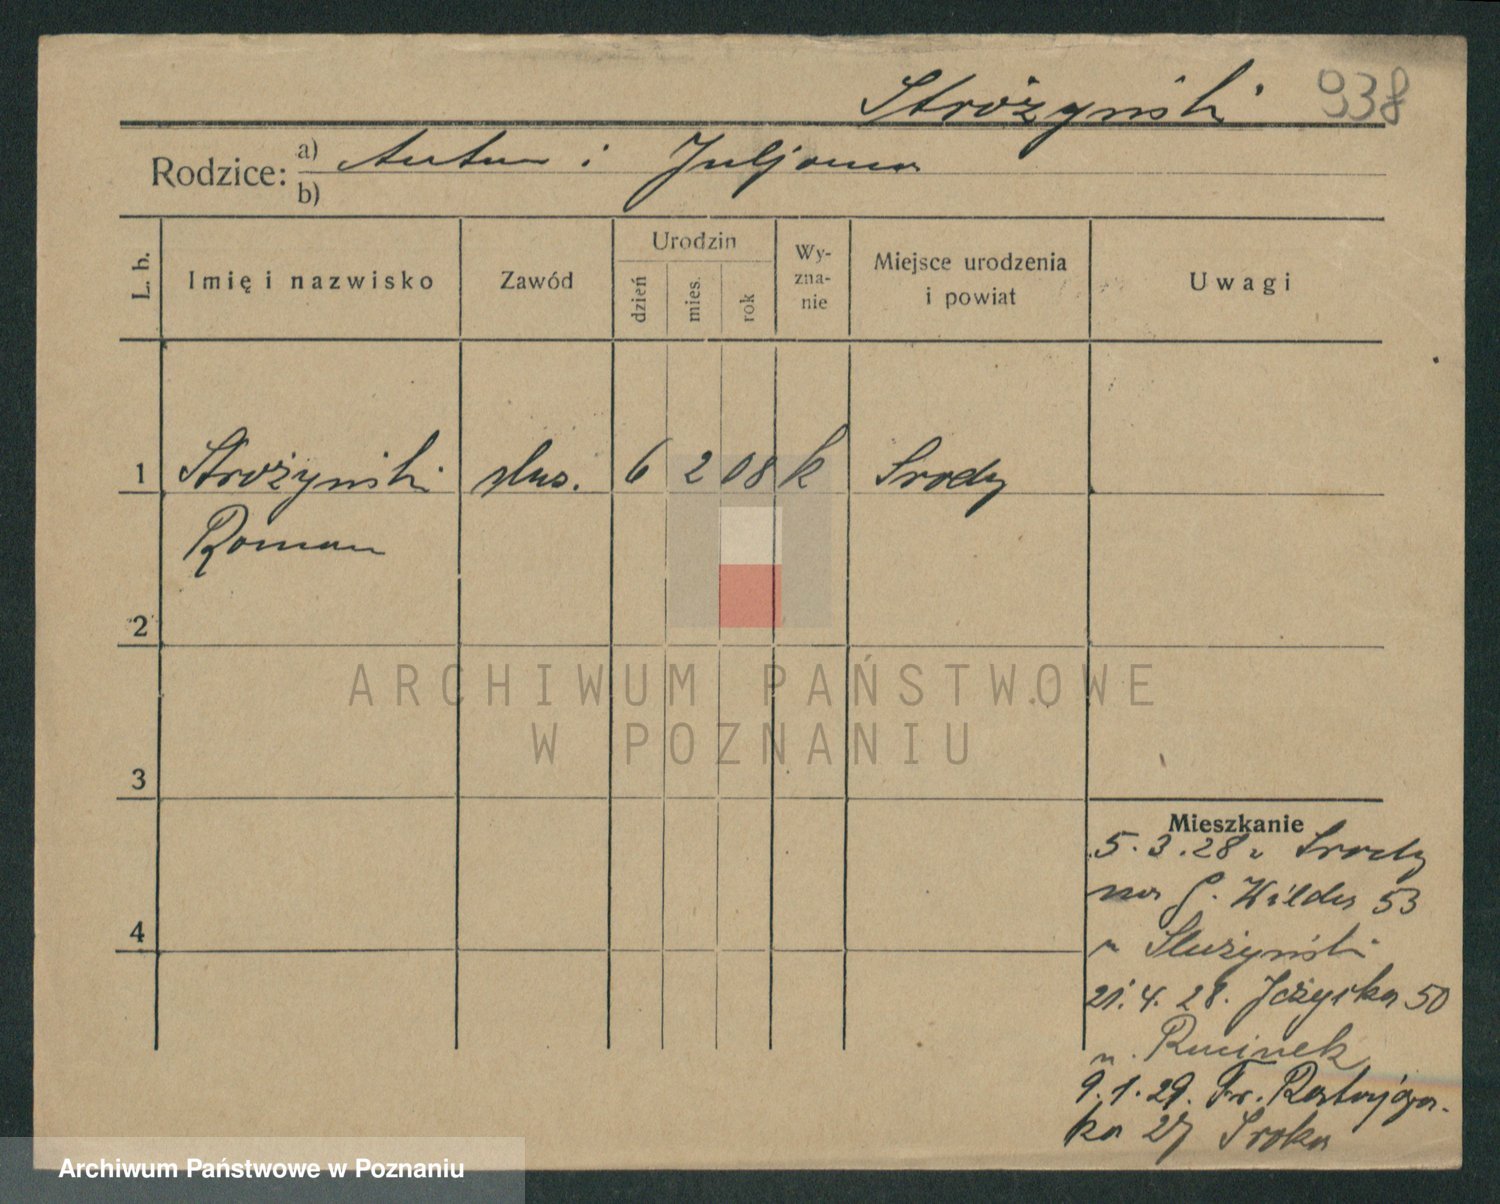 Stróżyński 938
Rodzice: a) Antoni i Juljanna
b)
L. b. Imię i nazwisko Zawód Urodzin dzień mies. rok Wyznanie Miejsce urodzenia i powiat Uwagi
1 Stróżyński ślus. 6 2 08 k Srody
Roman
2
ARCHIWUM PAŃSTWOWE
W POZNANIU
3
Mieszkanie
5.3.28 z Srody
na G. Wilda 53
u
4
21.4.28. Jeżycka 50
u.
9.1.29. Fr. Ratajcza-
ka 27 Sroka
Archiwum Państwowe w Poznaniu